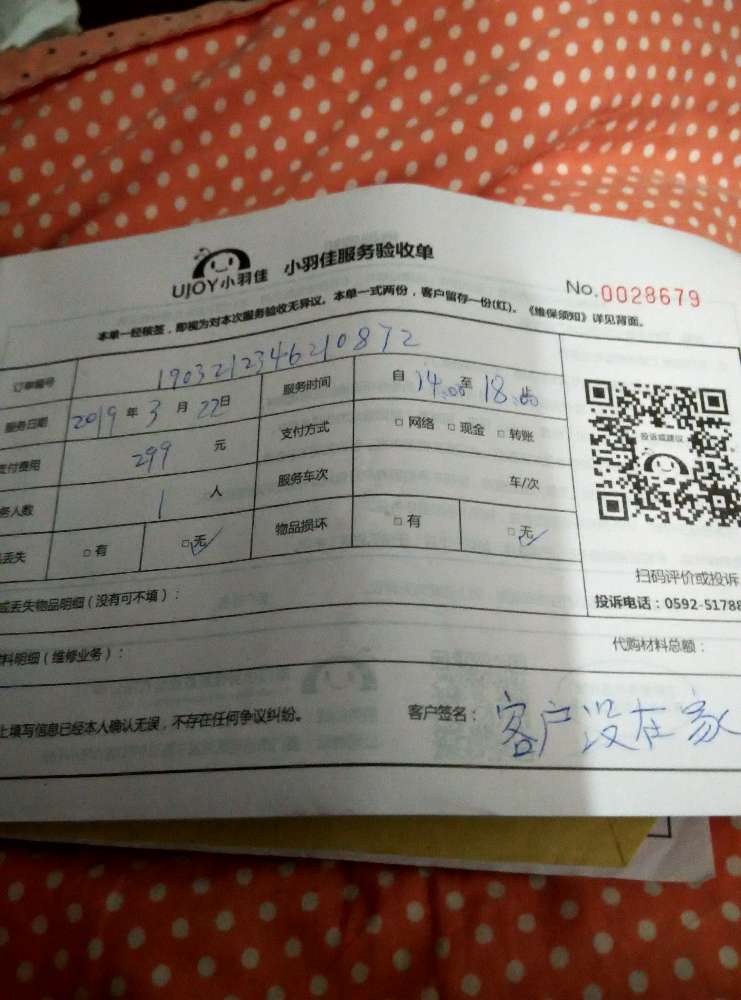 UJOY小羽佳 小羽佳服务验收单
No.0028679
本单一经核签，即视为对本次服务验收无异议。本单一式两份，客户留存一份(红)。《维保须知》详见背面。
订单编号 190321234621 0872
服务日期 2019年3月22日 服务时间 自14:00至18:00止
支付费用 299元 支付方式 □网络 □现金 □转账
务人数 1人 服务车次 车/次
丢失 □有 □无✓ 物品损坏 □有 □无✓
投诉或建议
扫码评价或投诉
投诉电话：0592-51788
或丢失物品明细（没有可不填）：
料明细（维修业务）： 代购材料总额：
上填写信息已经本人确认无误，不存在任何争议纠纷。 客户签名：客户没在家